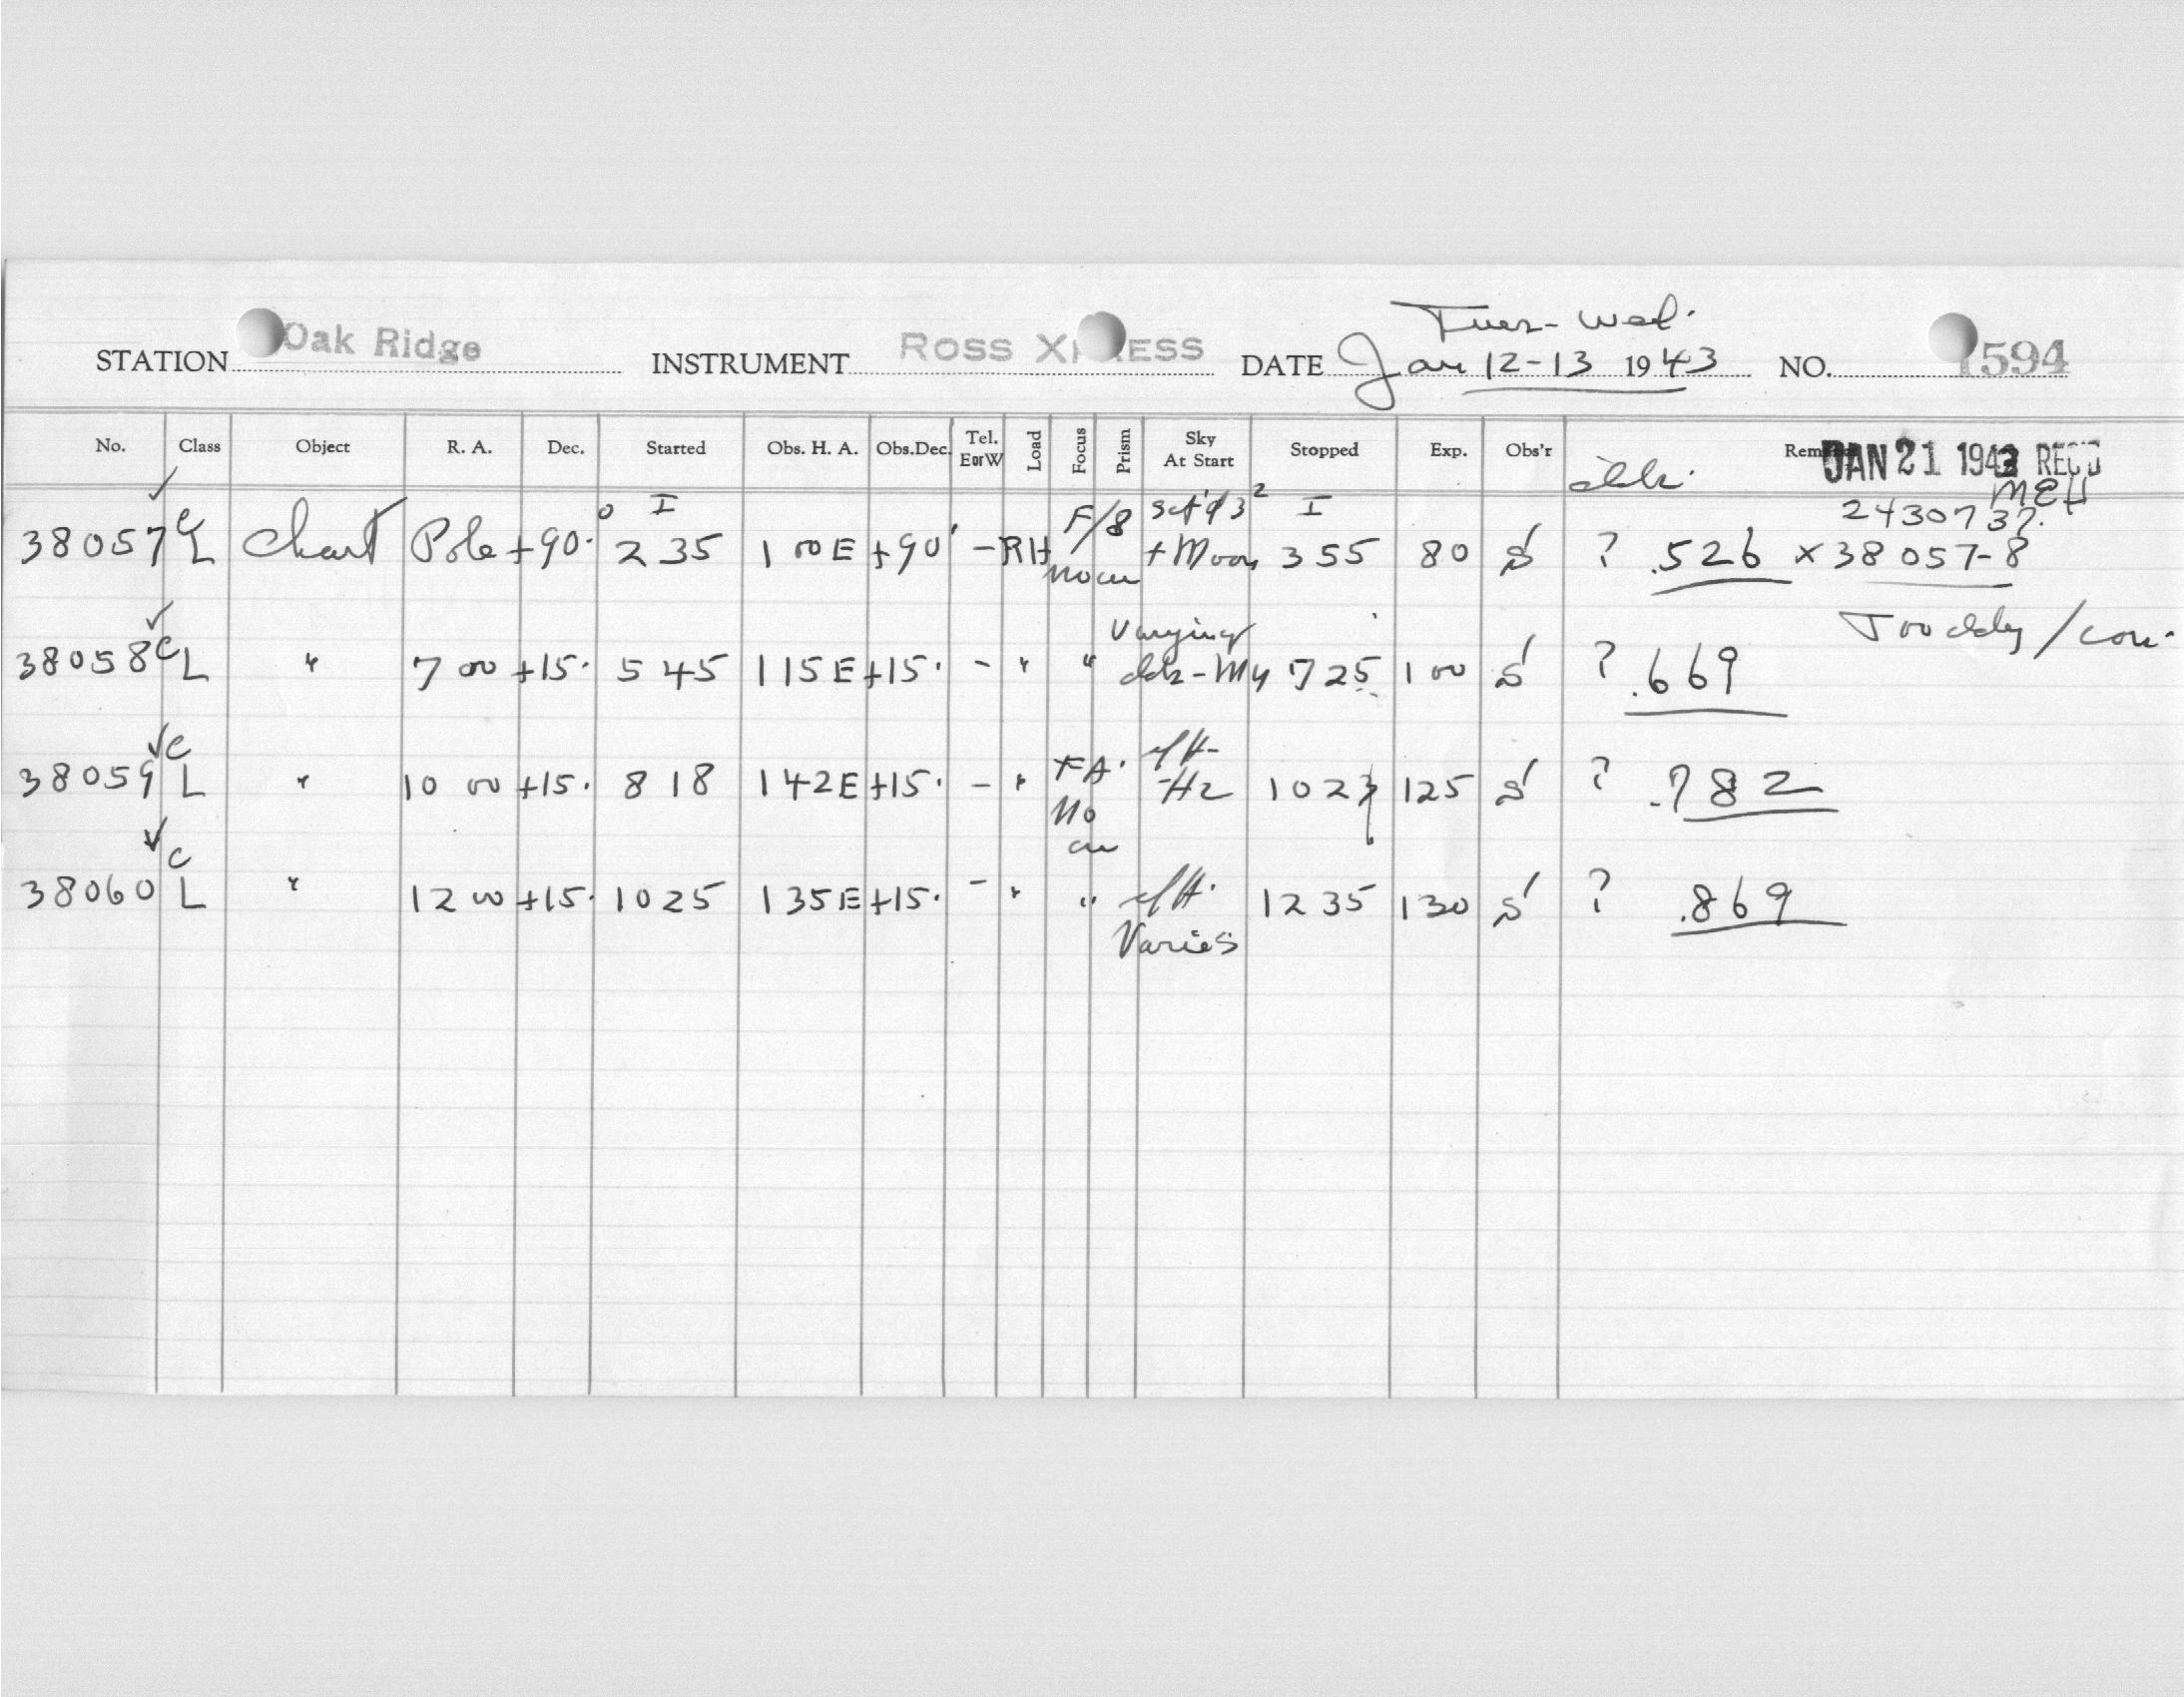 Tues - Wed.
STATION Oak Ridge INSTRUMENT ROSS X ESS DATE Jan 12-13 1943 NO. 1594
No. Class Object R. A. Dec. Started Obs. H. A. Obs.Dec. Tel. EorW Load Focus Prism Sky At Start Stopped Exp. Obs'r JAN 21 1943 REC'D
MEH
2430737.
38057 C L Chart Pole +90° 2 35 1 00 E +90° - RH F/8 sct'd 3 2 + Moon 3 55 80 S ? .526 × 38057-8
Varying
38058 C L " 7 00 +15° 5 45 1 15 E +15° - " " 7 25 100 S ? .669
38059 C L " 10 00 +15° 8 18 1 42 E +15° - " FA. No Hz 10 23 125 S ? .782
38060 C L " 12 00 +15° 10 25 1 35 E +15° - " " 12 35 130 S ? .869
Varies